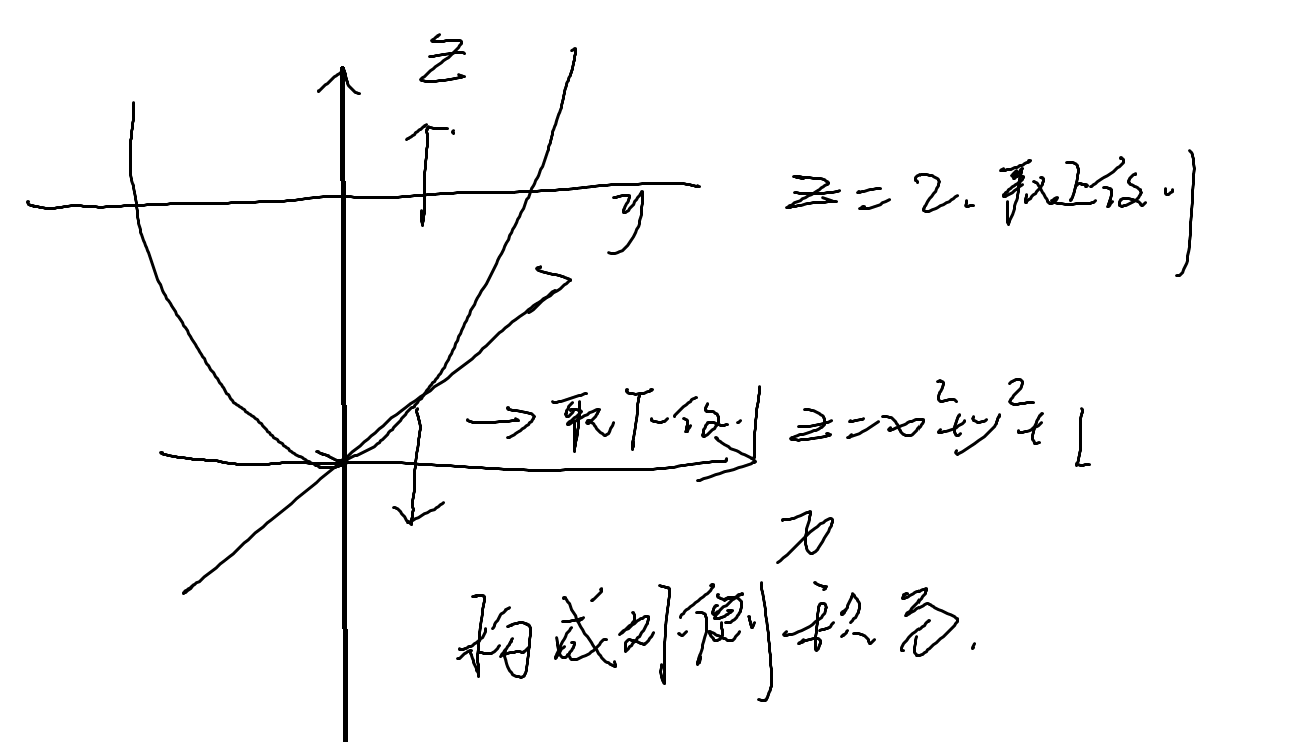 z
y
z=2. 取上侧
→取下侧 z=x²+y²+1
x
构成外侧积分.